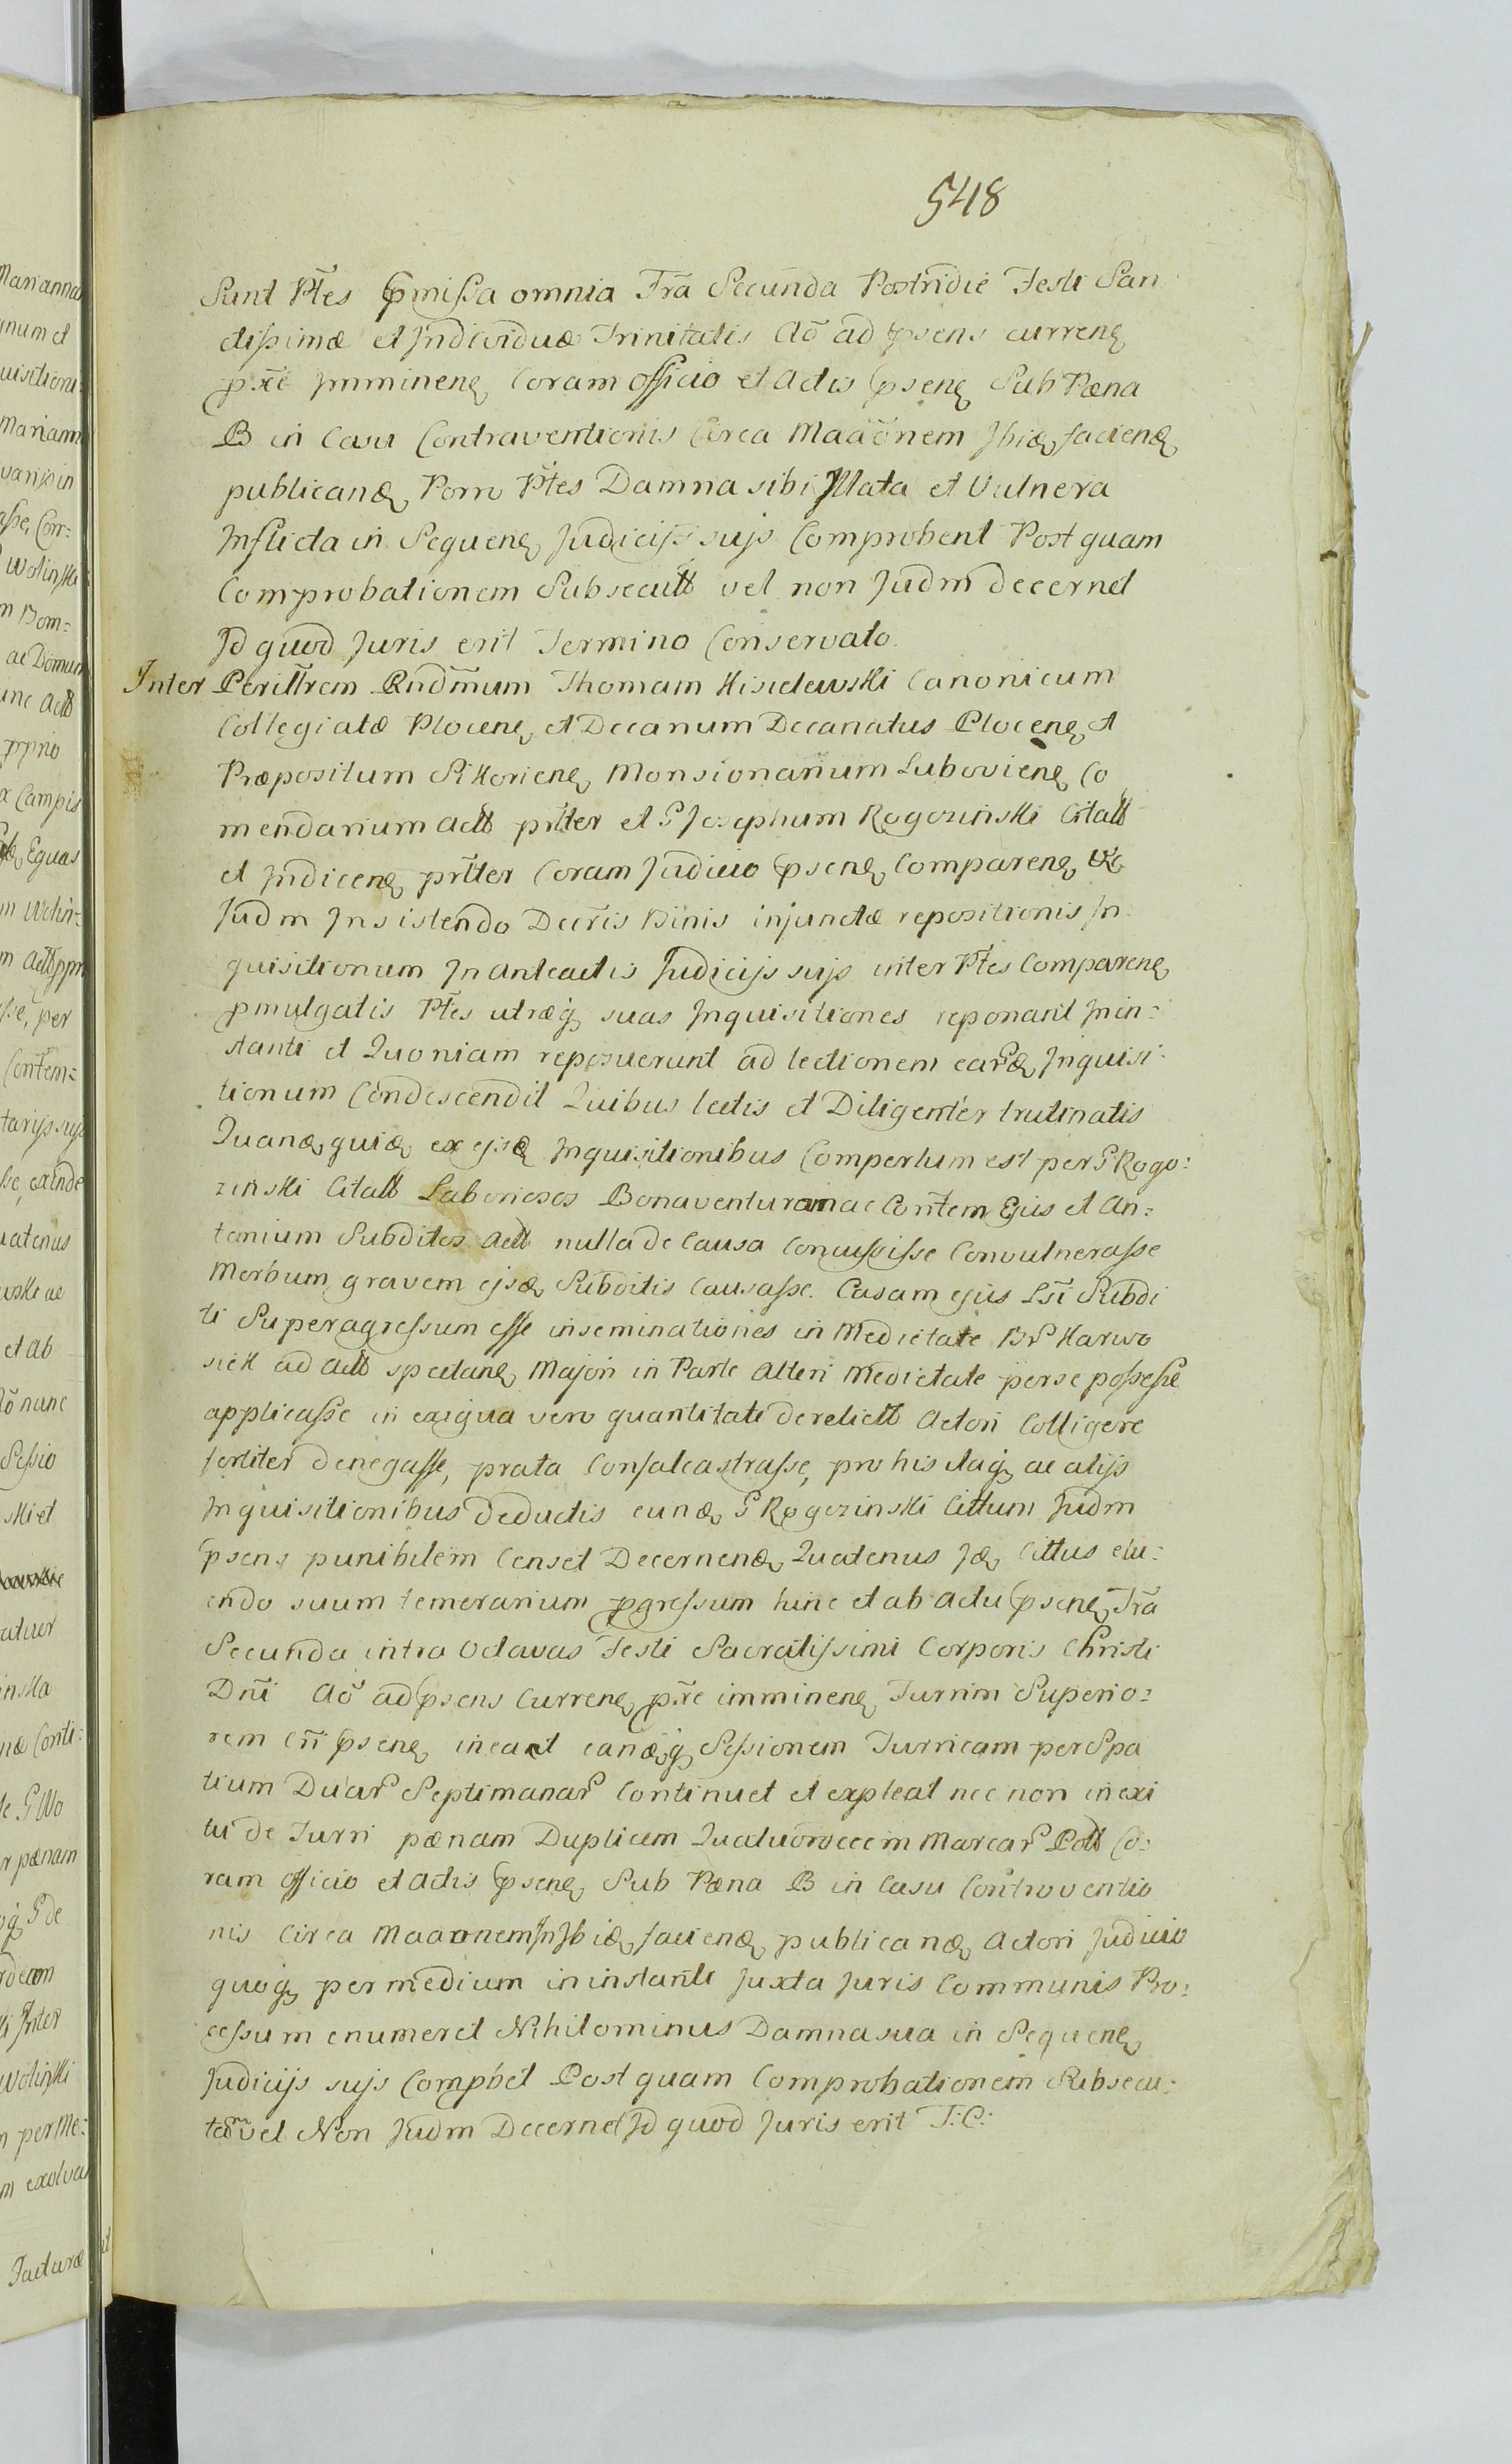 548
Sunt Ptes pmissa omnia Fra Secunda Postridie Festi San
ctissimæ et Individuæ Trinitatis Ao ad psens curren
Immineñ Coram officio et Actis psen Sub Pæna
B in Casu Contraventionis Circa Maaönem Ibid faciend
publicand Porro Ptes Damna sibi Illata et Vulnera
Inflicta in Sequen Judicijs sujs Comprobent Post quam
Comprobationem Subsecutt vel non Judm decernet
Id quod Juris erit Termino Conservato.
Inter Perilltrem Rndmum Thomam Kisielewski Canonicum
Collegiatæ Plocen et Decanum Decanatus Plocen et
Præpositum Sikorien Monsionarium Lubovien Co
mendarium Actt prtter et G Josephum Rogozinski Citatt
et Indicen prtter Coram Judicio psen Comparen &c
Judm Insistendo Decris Binis injunctæ repositionis In
quisitionum In anteactis Judicijs sujs inter Ptes Comparen
pmulgatis Ptes utræq suas Inquisitiones reponant In in:
stanti et Quoniam reposuerunt ad lectionem eard Inquisi:
tionum Condescendit Quibus lectis et Diligenter trutinatis
Quand quid ex ejsd Inquisitionibus Compertum est per G Rogo:
zinski Citatt Laboriosos Bonaventuram ac Contem Ejus et An:
tonium Subditos Actt nulla de Causa Concussisse Convulnerasse
Morbum gravem ejsd Subditis Causasse. Casam ejus Subdi
ti Superagressum esse inseminationes in Medietate Br Karwo
siek ad Actt spectan Majori in Parte Alteri Medietate per se possessæ
applicasse in exigua vero quantitate derelictt Actori Colligere
fortiter denegasse, prata Confalcastrasse, pro his itaq ac alijs
Inquisitionibus deductis eund G Rogozinski Cittum Judm
psens punibilem Censet Decernend Quatenus Id Cittus elu:
endo suum temerarium pgressum hinc et ab actu psen Fra
Secunda intra Octavas Festi Sacratissimi Corporis Christi
Dni Ao ad psens Curren imminen Turrim Superio:
rem Cñ psen ineat eandq Sessionem Turricam per Spa
tium Duar Septimanar Continuet et expleat nec non in exi
tu de Turri pænam Duplicem Quatuordecem Marcar Pott Co:
ram officio et Actis psen Sub Pæna B in Casu Controventio
nis Circa Maaonem In Ibid faciend publicand Actori Judicio
quoq per medium in instanti Juxta Juris Communis Pro:
cessum enumeret Nihilominus Damna sua in Sequen
Judicijs sujs Compbet Post quam Comprobationem Subsecu:
tam vel Non Judm Decernet Id quod Juris erit T: C: